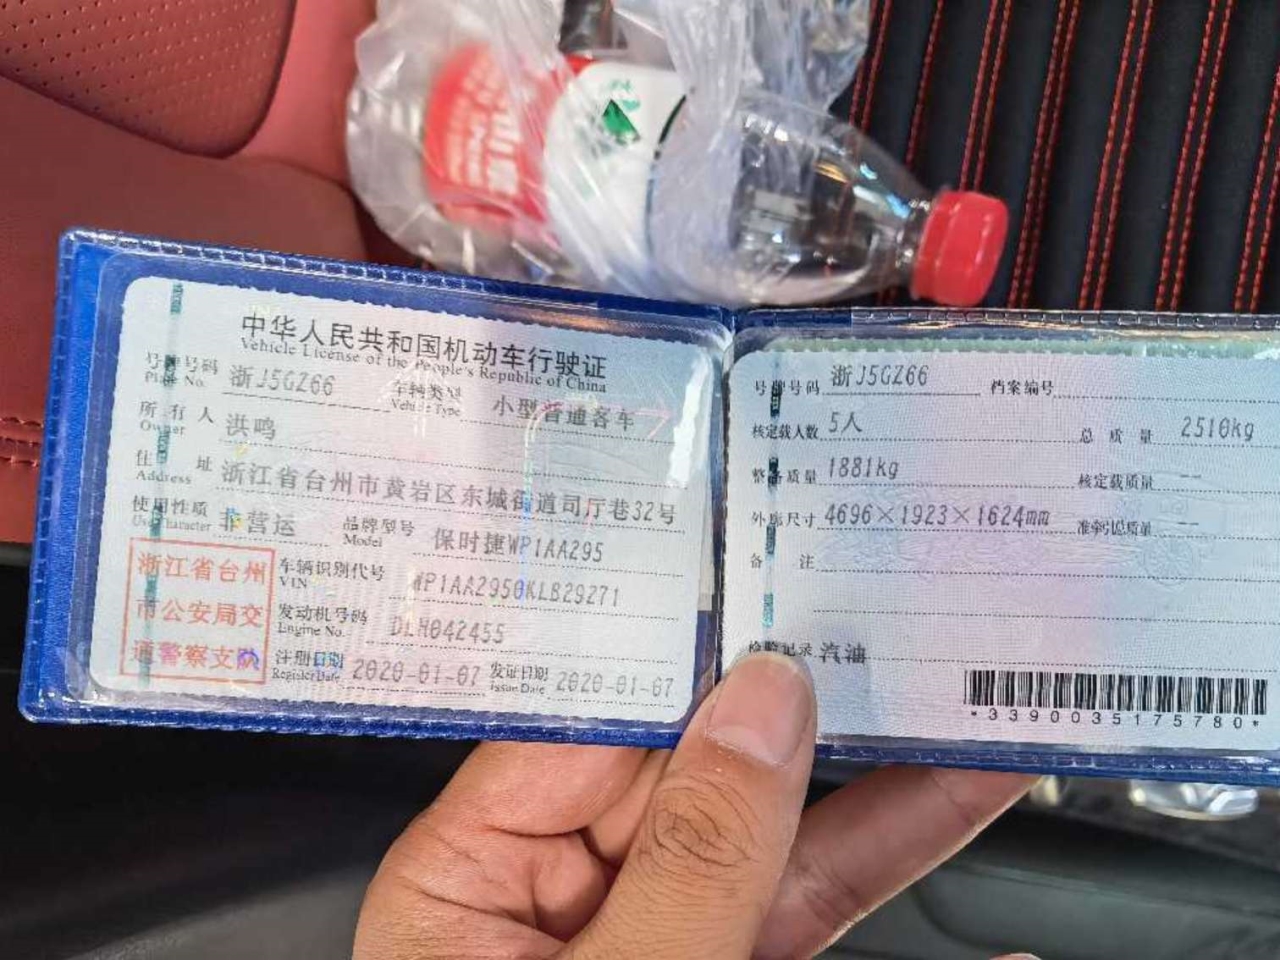 中华人民共和国机动车行驶证
Vehicle License of the People's Republic of China
号牌号码 浙J5GZ66 车辆类型 小型普通客车
Plate No. Vehicle Type
所有人 洪鸣
Owner
住址 浙江省台州市黄岩区东城街道司厅巷32号
Address
使用性质 非营运 品牌型号 保时捷WP1AA295
Use Character Model
浙江省台州
市公安局交
通警察支队
车辆识别代号 WP1AA2950KLB29271
VIN
发动机号码 DLH042455
Engine No.
注册日期 2020-01-07 发证日期 2020-01-07
Register Date Issue Date
号牌号码 浙J5GZ66 档案编号
核定载人数 5人 总质量 2510kg
整备质量 1881kg 核定载质量 --
外廓尺寸 4696×1923×1624mm 准牵引总质量 --
备注
检验记录 汽油
*3390035175780*